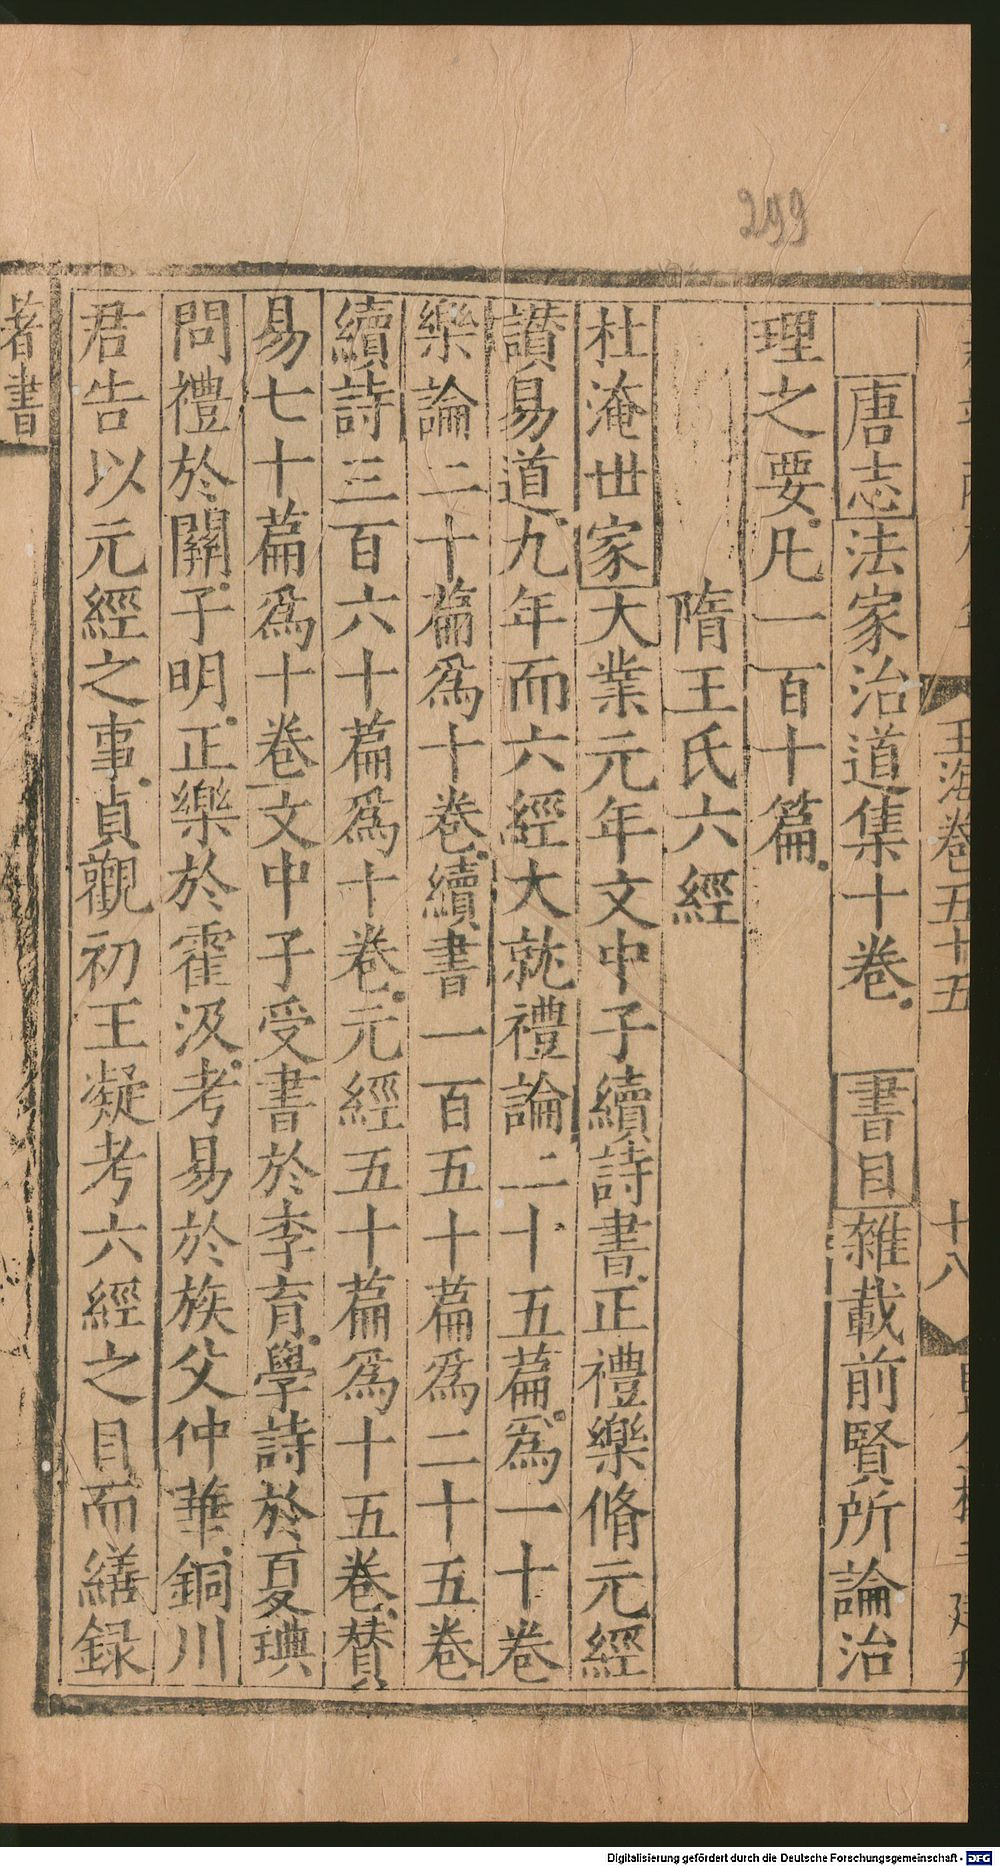 299
玉海卷五十五
十八
唐志法家治道集十卷。書目雜載前賢所論治
理之要。凡一百十篇。
隋王氏六經
杜淹世家大業元年文中子續詩書。正禮樂脩元經
讃易道。九年而六經大就禮論二十五篇。爲一十卷
樂論二十篇爲十卷。續書一百五十篇爲二十五卷
續詩三百六十篇爲十卷。元經五十篇爲十五卷。賛
易七十篇爲十卷文中子受書於李育。學詩於夏琠
問禮於關子明。正樂於霍汲。考易於族父仲華。銅川
君告以元經之事。貞觀初王凝考六經之目而繕録
著書
Digitalisierung gefördert durch die Deutsche Forschungsgemeinschaft - DFG